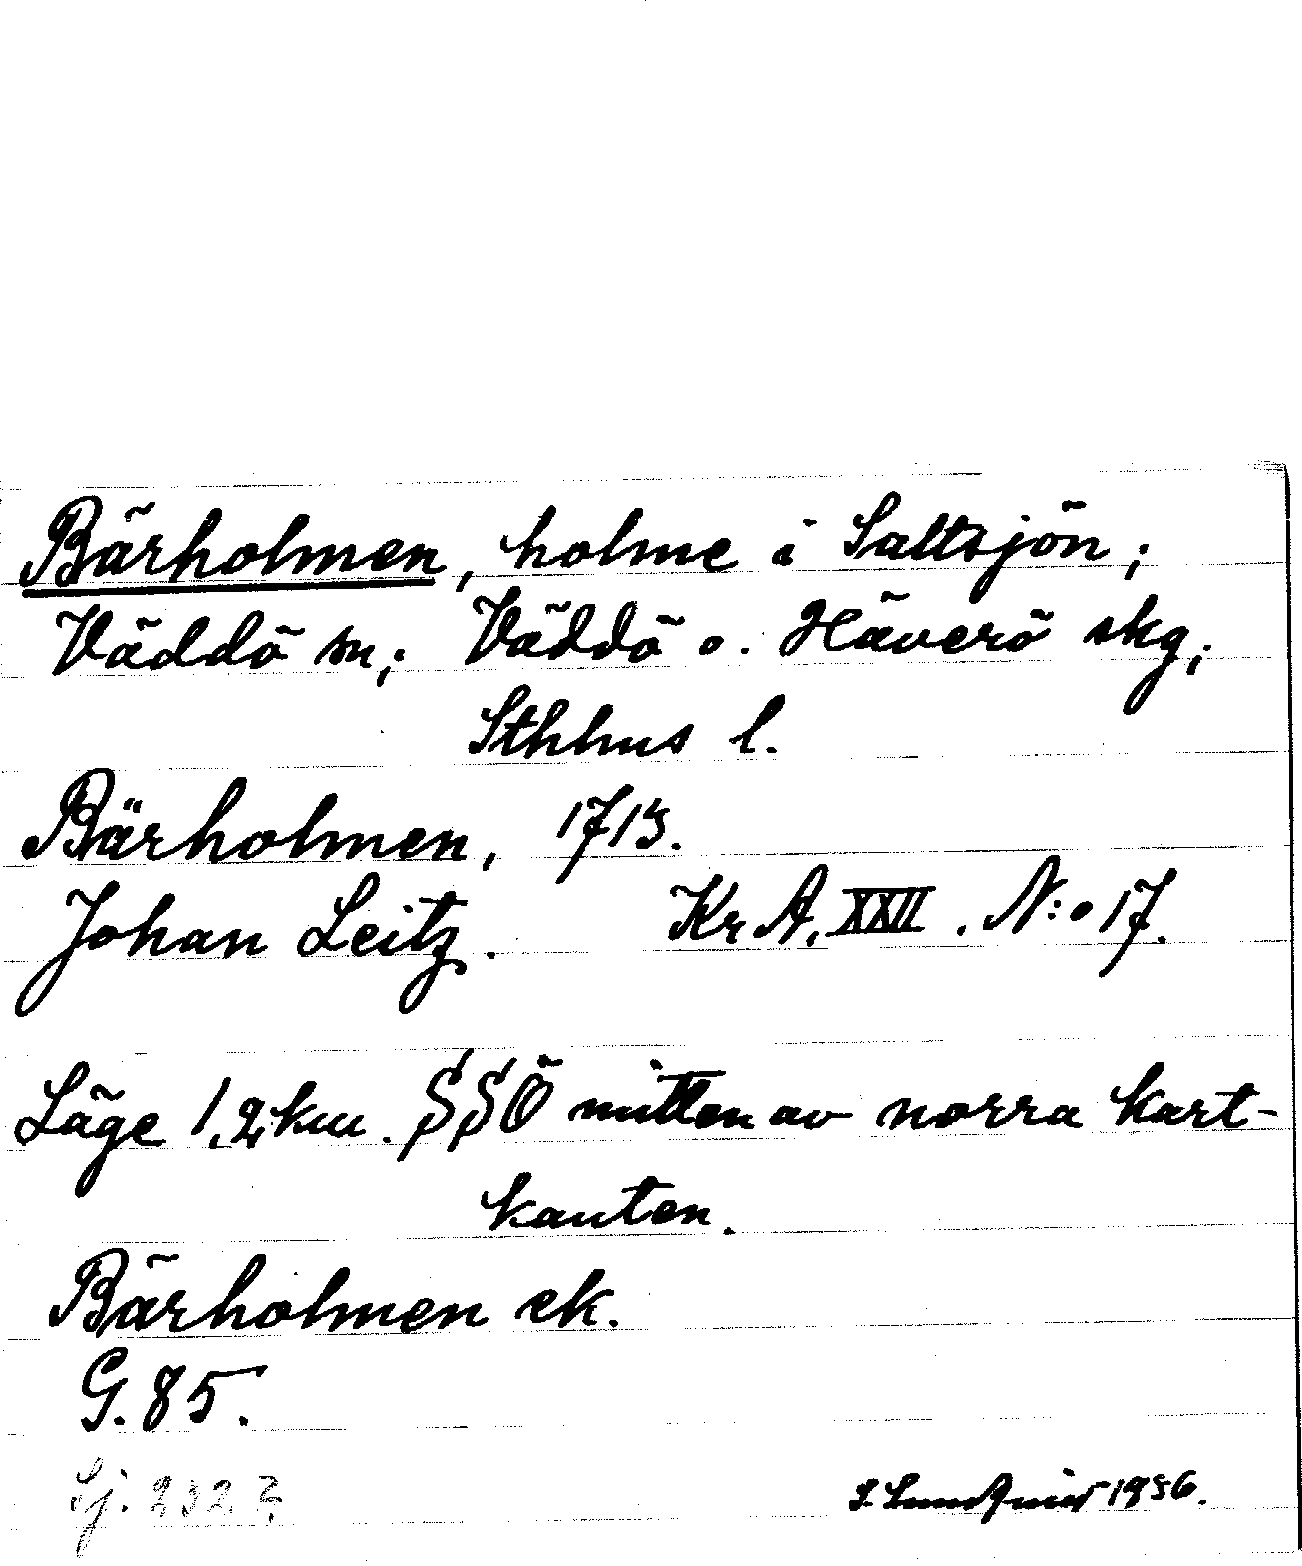 Bärholmen, holme i Saltsjön;
Väddö sn; Väddö o. Häverö skg;
Sthlms l.
Bärholmen, 1713.
Johan Leitz. Kr A. XXII. N:o 17.
Läge 1,2 km. SSÖ mitten av norra kart-
kanten.
Bärholmen ek.
G. 85.
Sj. 232
S. Lundquist 1936.